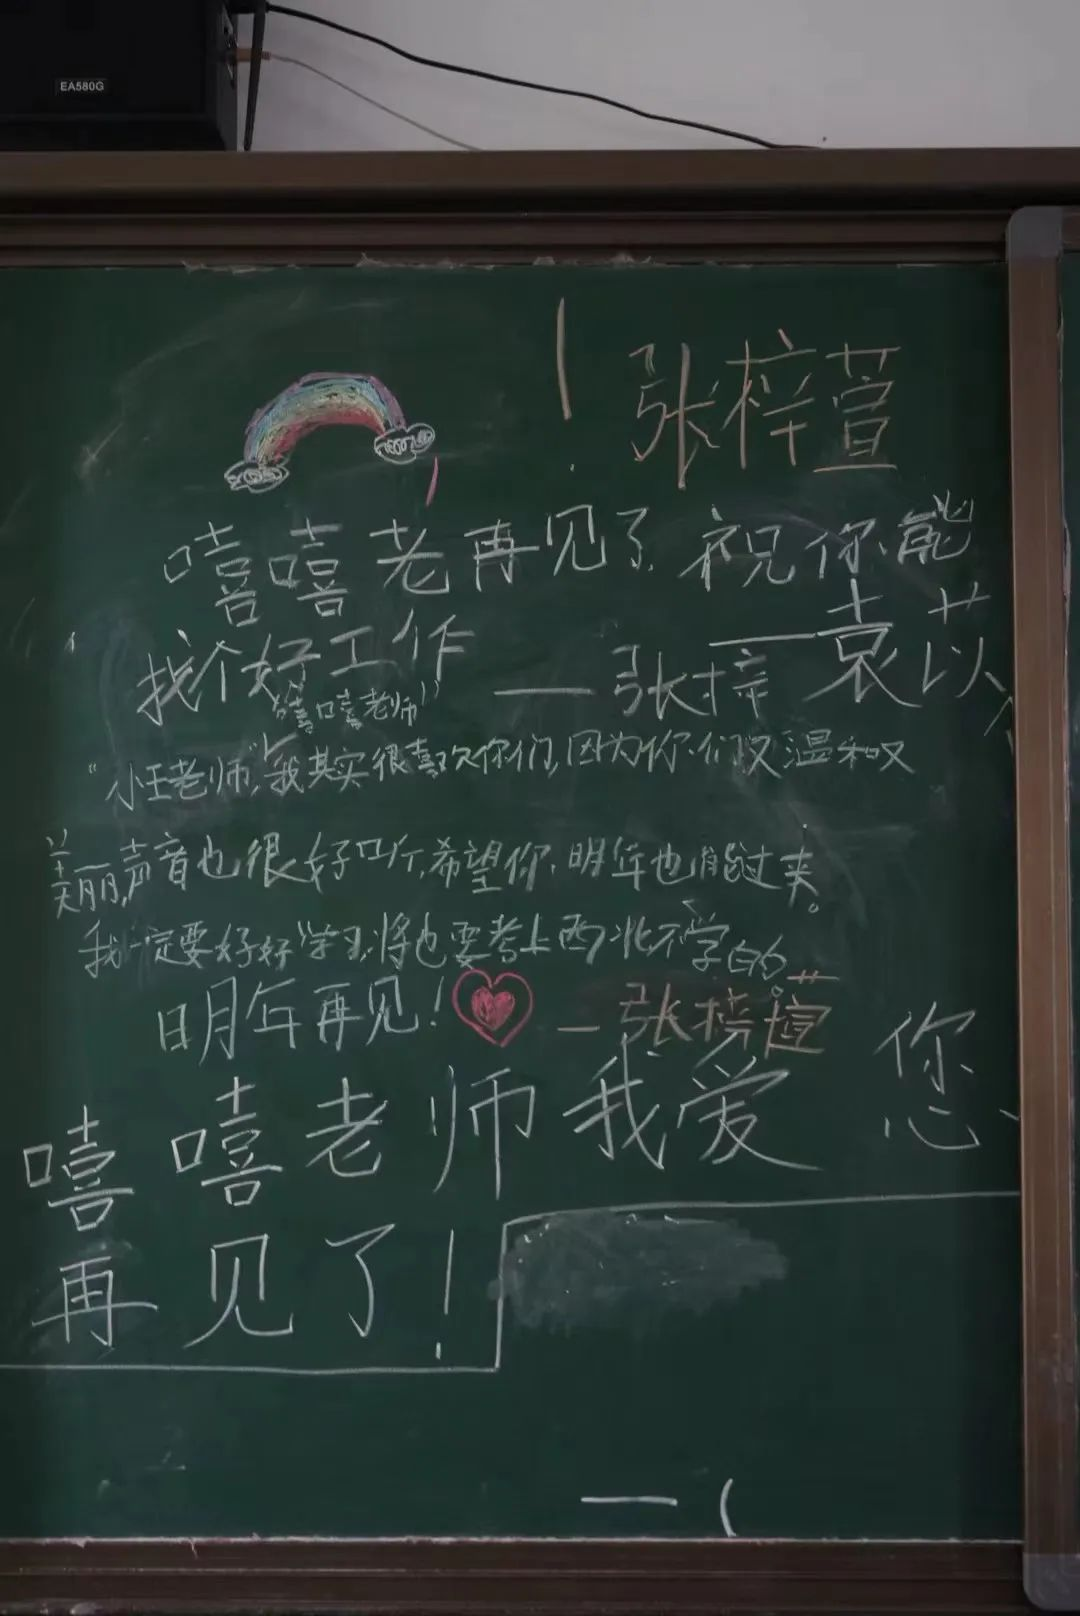 EA580G
! 张梓萱
嘻嘻老再见了祝你能
找个好工作
——袁苡
——张梓
嘻嘻老师"
"小王老师",我其实很喜欢你们,因为你们又温和又
美丽,声音也很好听,希望你明年也能过来。
我一定要好好学习,将也要考上西北大学的。
明年再见! —张梓萱
嘻嘻老师我爱您
再见了!
—(